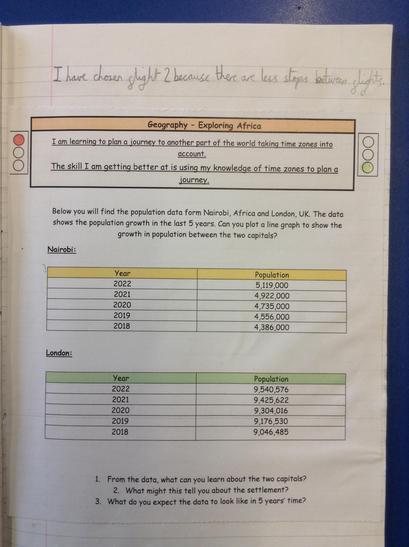 I have chosen flight 2 because there are less stops between flights.
Geography - Exploring Africa
I am learning to plan a journey to another part of the world taking time zones into
account.
The skill I am getting better at is using my knowledge of time zones to plan a
journey.
Below you will find the population data form Nairobi, Africa and London, UK. The data
shows the population growth in the last 5 years. Can you plot a line graph to show the
growth in population between the two capitals?
Nairobi:
Year Population
2022 5,119,000
2021 4,922,000
2020 4,735,000
2019 4,556,000
2018 4,386,000
London:
Year Population
2022 9,540,576
2021 9,425,622
2020 9,304,016
2019 9,176,530
2018 9,046,485
1. From the data, what can you learn about the two capitals?
2. What might this tell you about the settlement?
3. What do you expect the data to look like in 5 years' time?